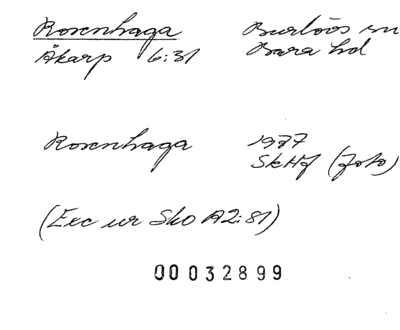 Rosenhaga Burlövs sn
Åkarp 6:31 Bara hd
Rosenhaga 1937
SkHf (foto)
(Exc ur Sko A2:81)
00032899